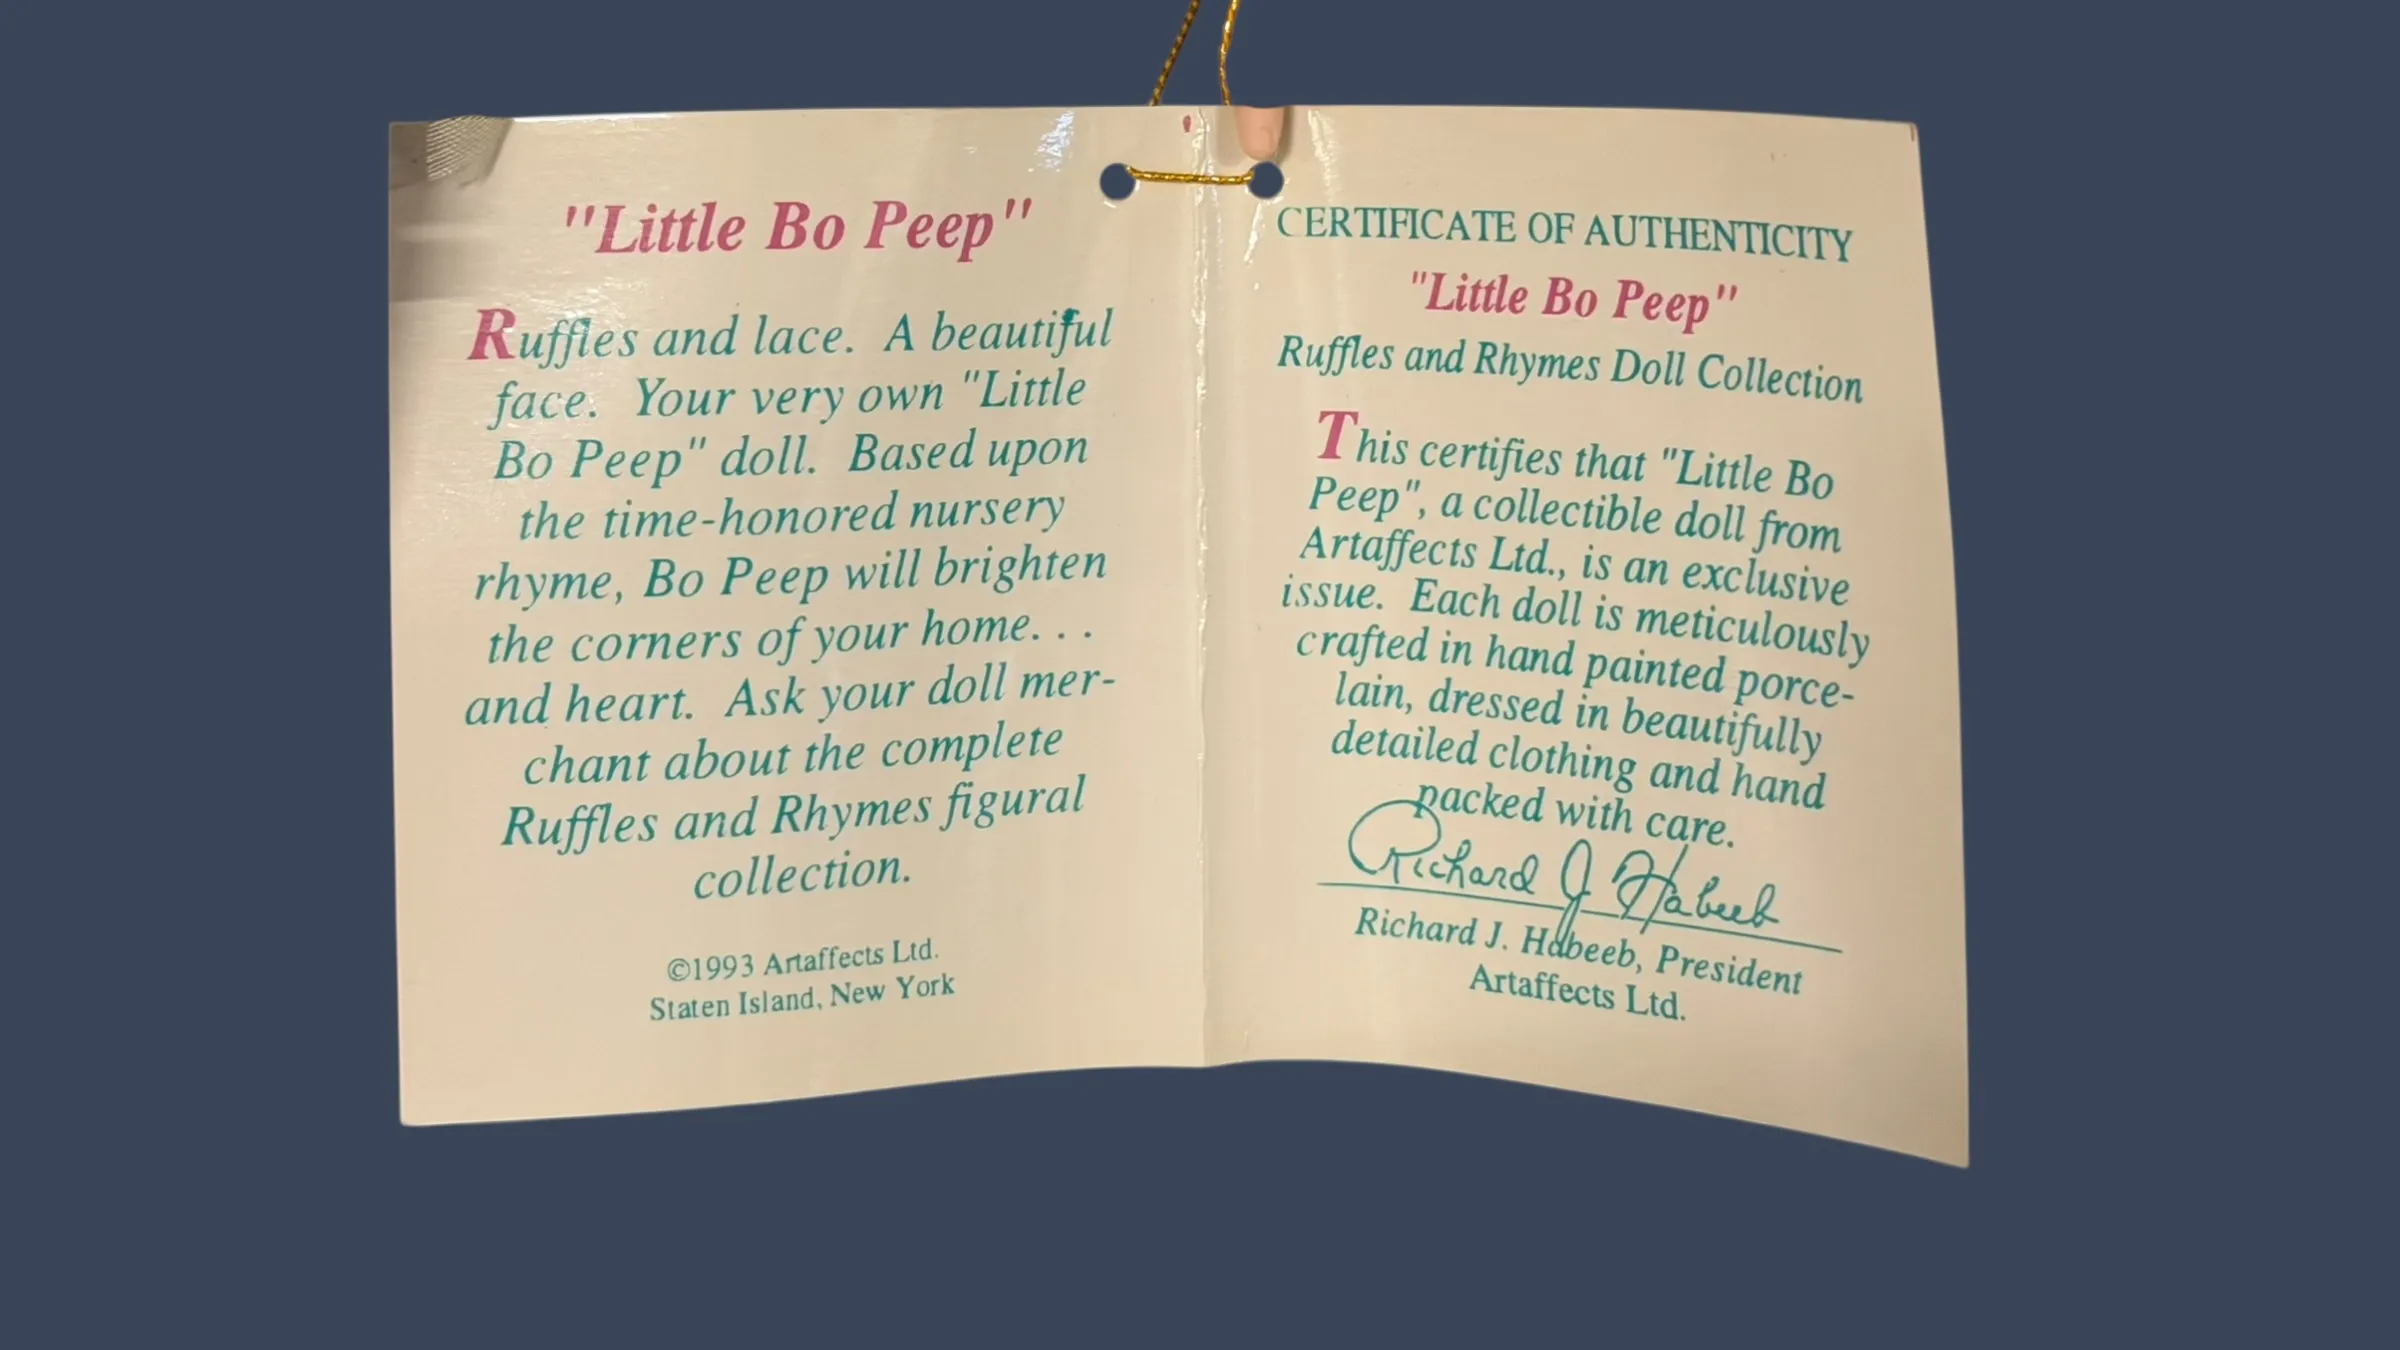 "Little Bo Peep"
Ruffles and lace. A beautiful
face. Your very own "Little
Bo Peep" doll. Based upon
the time-honored nursery
rhyme, Bo Peep will brighten
the corners of your home. . .
and heart. Ask your doll mer-
chant about the complete
Ruffles and Rhymes figural
collection.
©1993 Artaffects Ltd.
Staten Island, New York
CERTIFICATE OF AUTHENTICITY
"Little Bo Peep"
Ruffles and Rhymes Doll Collection
This certifies that "Little Bo
Peep", a collectible doll from
Artaffects Ltd., is an exclusive
issue. Each doll is meticulously
crafted in hand painted porce-
lain, dressed in beautifully
detailed clothing and hand
packed with care.
Richard J Habeeb
Richard J. Habeeb, President
Artaffects Ltd.